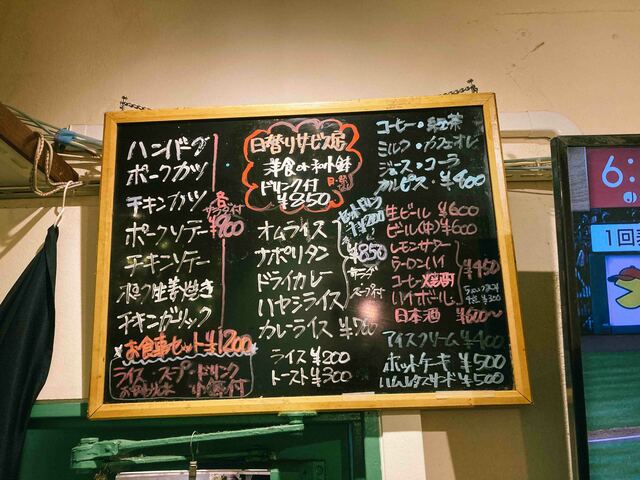 ハンバーグ
ポークカツ
チキンカツ
ポークソテー
チキンソテー
豚生姜焼き
チキンガーリック
各
サラダ付
¥900
お食事セット ¥1200
ライス スープ・ドリンク
付
日替りサービス
洋食or和食
ドリンク付
¥850
オムライス
ナポリタン
ドライカレー
ハヤシライス
カレーライス ¥700
¥850
サラダ
スープ付
ライス ¥200
トースト ¥300
コーヒー・紅茶
ミルク・カフェオレ
ジュース・コーラ
カルピス・¥400
生ビール ¥600
ビール(中) ¥600
レモンサワー
ウーロンハイ
コーヒー焼酎
ハイボール
¥450
日本酒 ¥600〜
アイスクリーム ¥400
ホットケーキ ¥500
ハムレタスサンド ¥500
6:
1回表